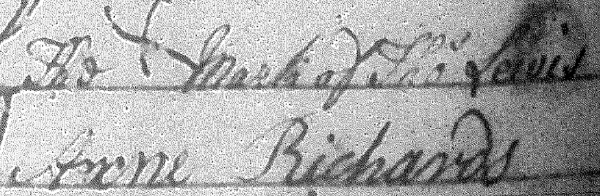 The Mark of Thos Lewis
Anne Richards